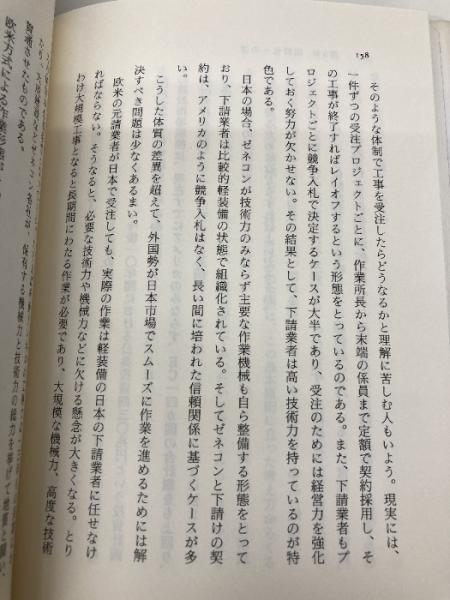 158
そのような体制で工事を受注したらどうなるかと理解に苦しむ人もいよう。現実には、
一件ずつの受注プロジェクトごとに、作業所長から末端の係員まで定額で契約採用し、そ
の工事が終了すればレイオフするという形態をとっているのである。また、下請業者もプ
ロジェクトごとに競争入札で決定するケースが大半であり、受注のためには経営力を強化
しておく努力が欠かせない。その結果として、下請業者は高い技術力を持っているのが特
色である。
日本の場合、ゼネコンが技術力のみならず主要な作業機械も自ら整備する形態をとって
おり、下請業者は比較的軽装備の状態で組織化されている。そしてゼネコンと下請けの契
約は、アメリカのように競争入札はなく、長い間に培われた信頼関係に基づくケースが多
い。
こうした体質の差異を超えて、外国勢が日本市場でスムーズに作業を進めるためには解
決すべき問題は少なくあるまい。
欧米の元請業者が日本で受注しても、実際の作業は軽装備の日本の下請業者に任せなけ
ればならない。そうなると、必要な技術力や機械力などに欠ける懸念が大きくなる。とり
わけ大規模工事となると長期間にわたる作業が必要であり、大規模な機械力、高度な技術
保有する機械力と技術力の総力を挙げて
貫通させたものである。
欧米方式による作業形態が